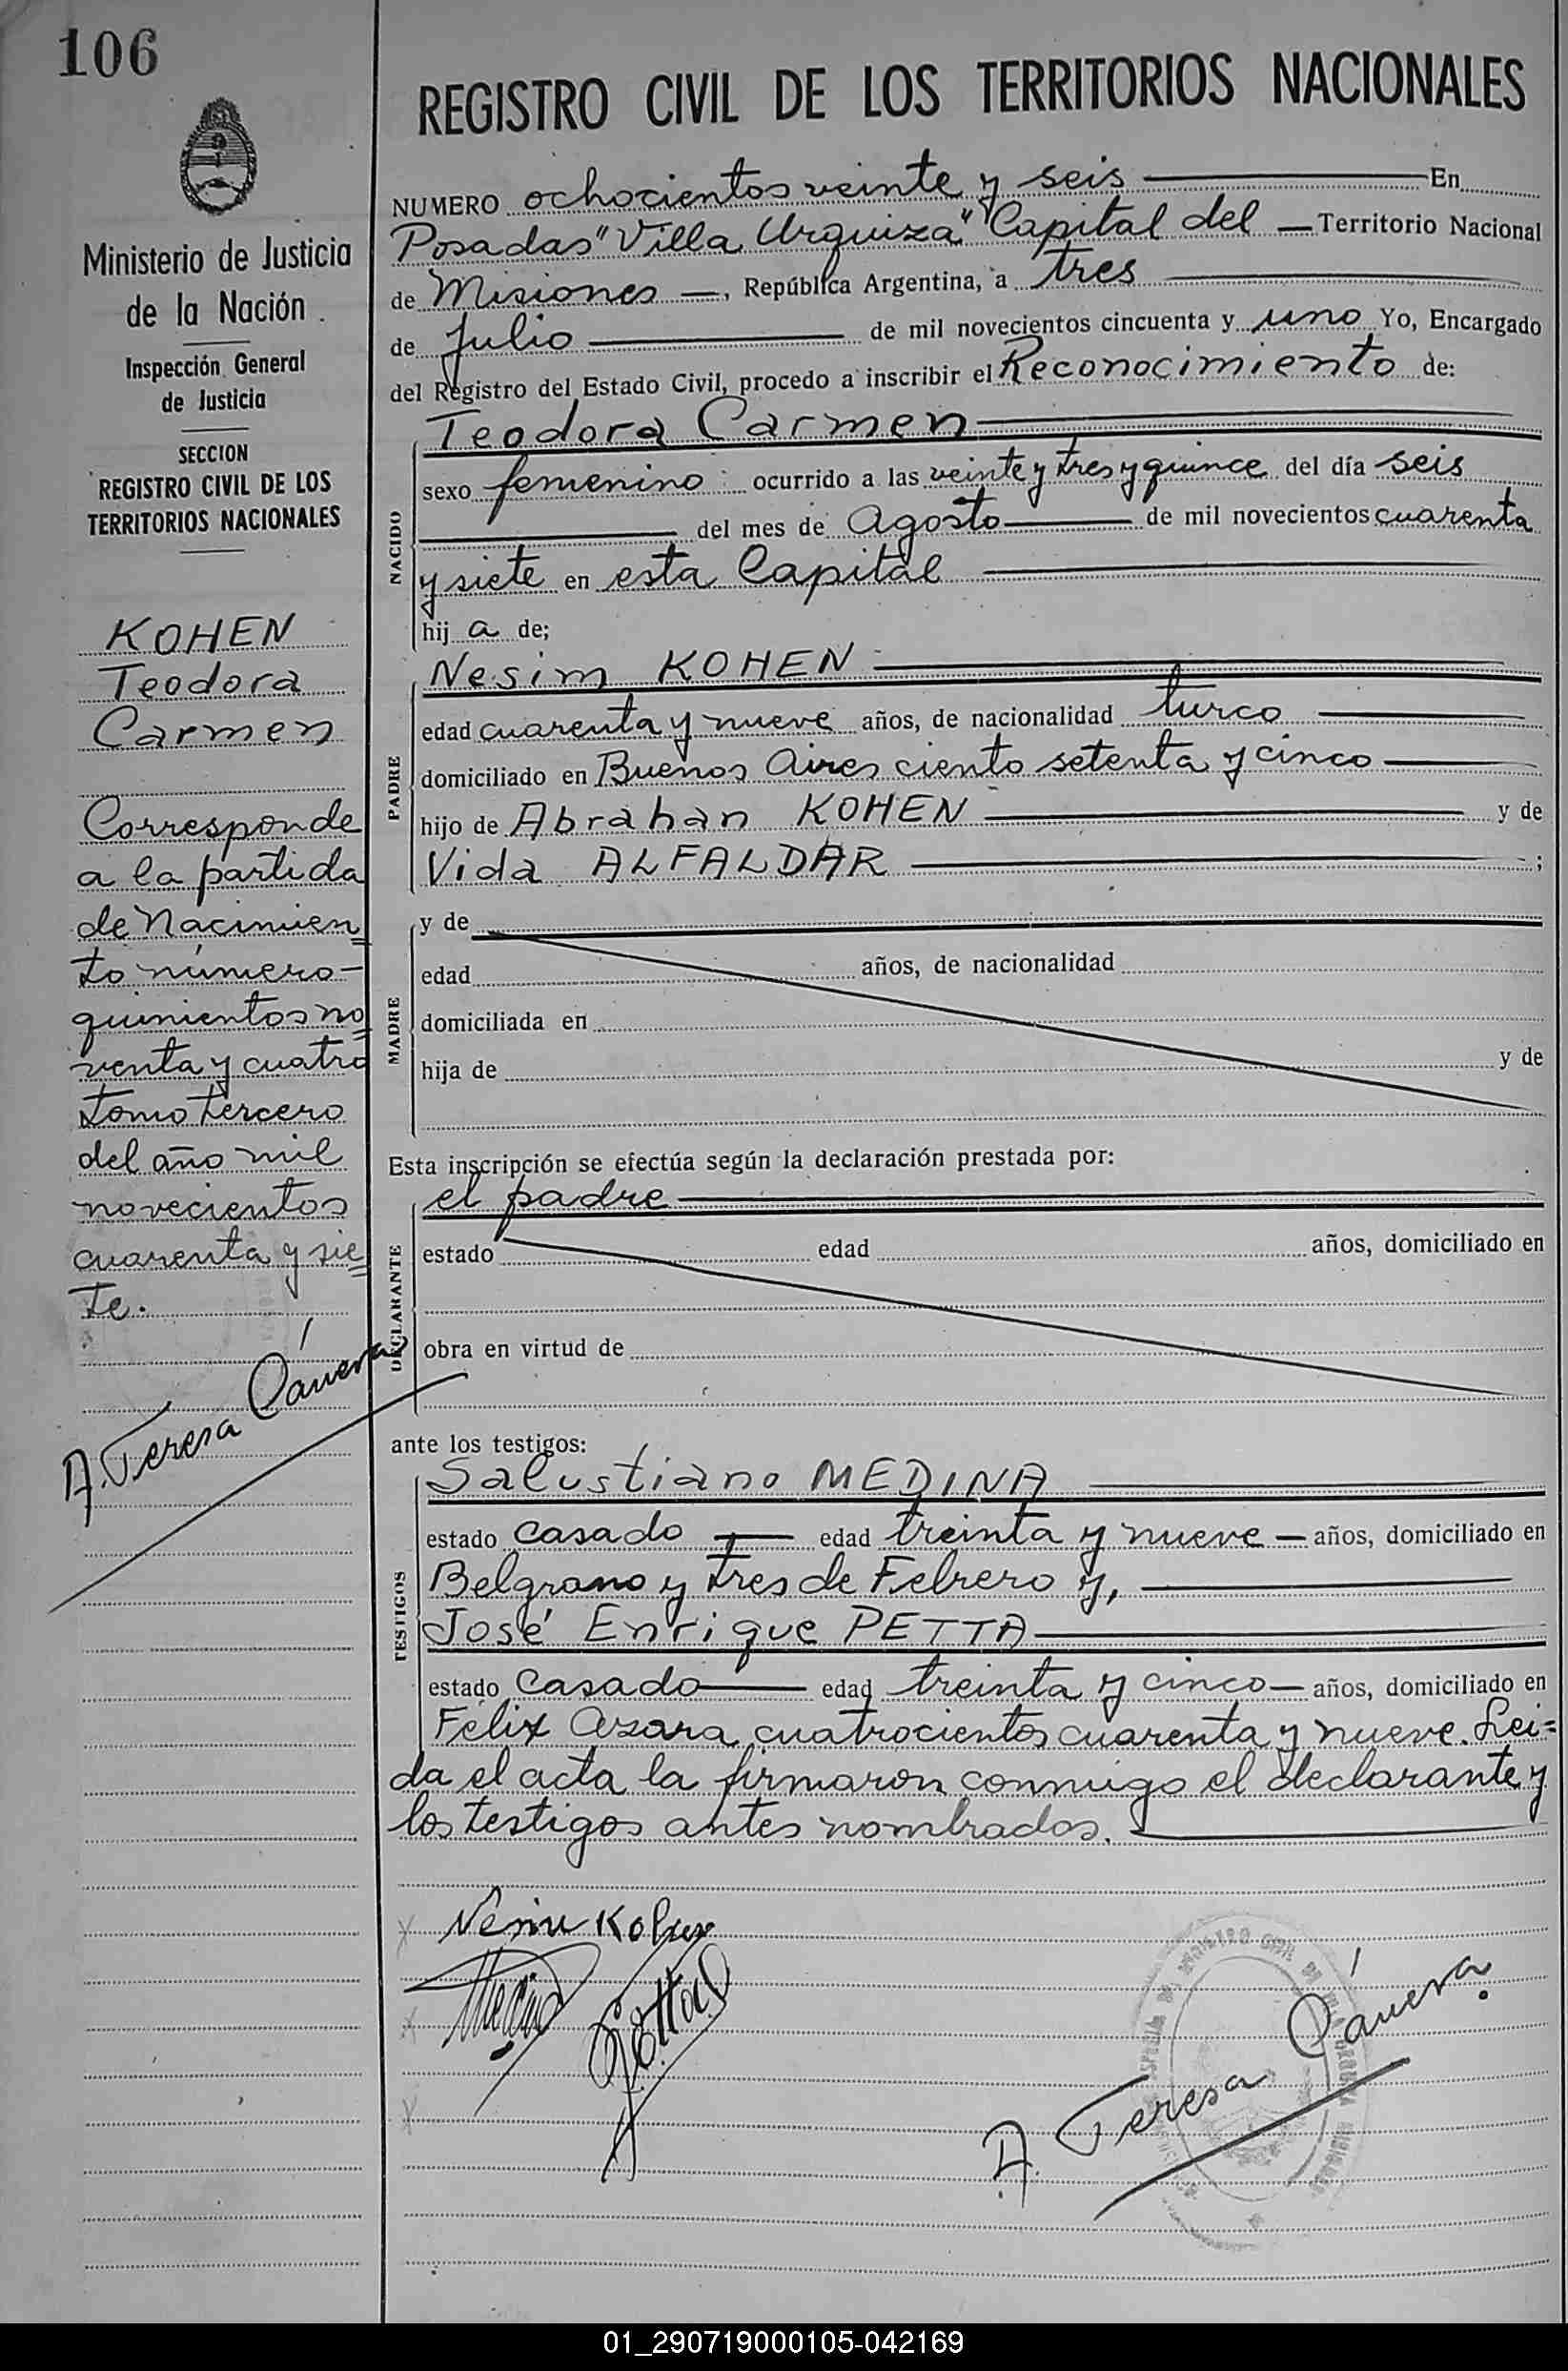 106
Ministerio de Justicia
de la Nación
Inspección General
de Justicia
SECCION
REGISTRO CIVIL DE LOS
TERRITORIOS NACIONALES
KOHEN
Teodora
Carmen
Corresponde
a la partida
de Nacimien=
to número-
quinientos no=
venta y cuatro
tomo tercero
del año mil
novecientos
cuarenta y sie=
te.
A. Teresa
REGISTRO CIVIL DE LOS TERRITORIOS NACIONALES
NUMERO ochocientos veinte y seis En
Posadas "Villa Urquiza" Capital del Territorio Nacional
de Misiones, República Argentina, a tres
de Julio de mil novecientos cincuenta y uno Yo, Encargado
del Registro del Estado Civil, procedo a inscribir el Reconocimiento de:
NACIDO
Teodora Carmen
sexo femenino ocurrido a las veinte y tres y quince del día seis
del mes de Agosto de mil novecientos cuarenta
y siete en esta Capital
hij a de;
PADRE
Nesim KOHEN
edad cuarenta y nueve años, de nacionalidad turco
domiciliado en Buenos Aires ciento setenta y cinco
hijo de Abrahan KOHEN y de
Vida ALFALDAR ;
MADRE
y de
edad años, de nacionalidad
domiciliada en
hija de y de
Esta inscripción se efectúa según la declaración prestada por:
DECLARANTE
el padre
estado edad años, domiciliado en
obra en virtud de
ante los testigos:
TESTIGOS
Salustiano MEDINA
estado Casado edad treinta y nueve años, domiciliado en
Belgrano y Tres de Febrero y,
José Enrique PETTA
estado Casado edad treinta y cinco años, domiciliado en
Félix Azara cuatrocientos cuarenta y nueve. Lei=
da el acta la firmaron conmigo el declarante y
los testigos antes nombrados.
Nesim Kohen
A. Teresa
01_290719000105-042169